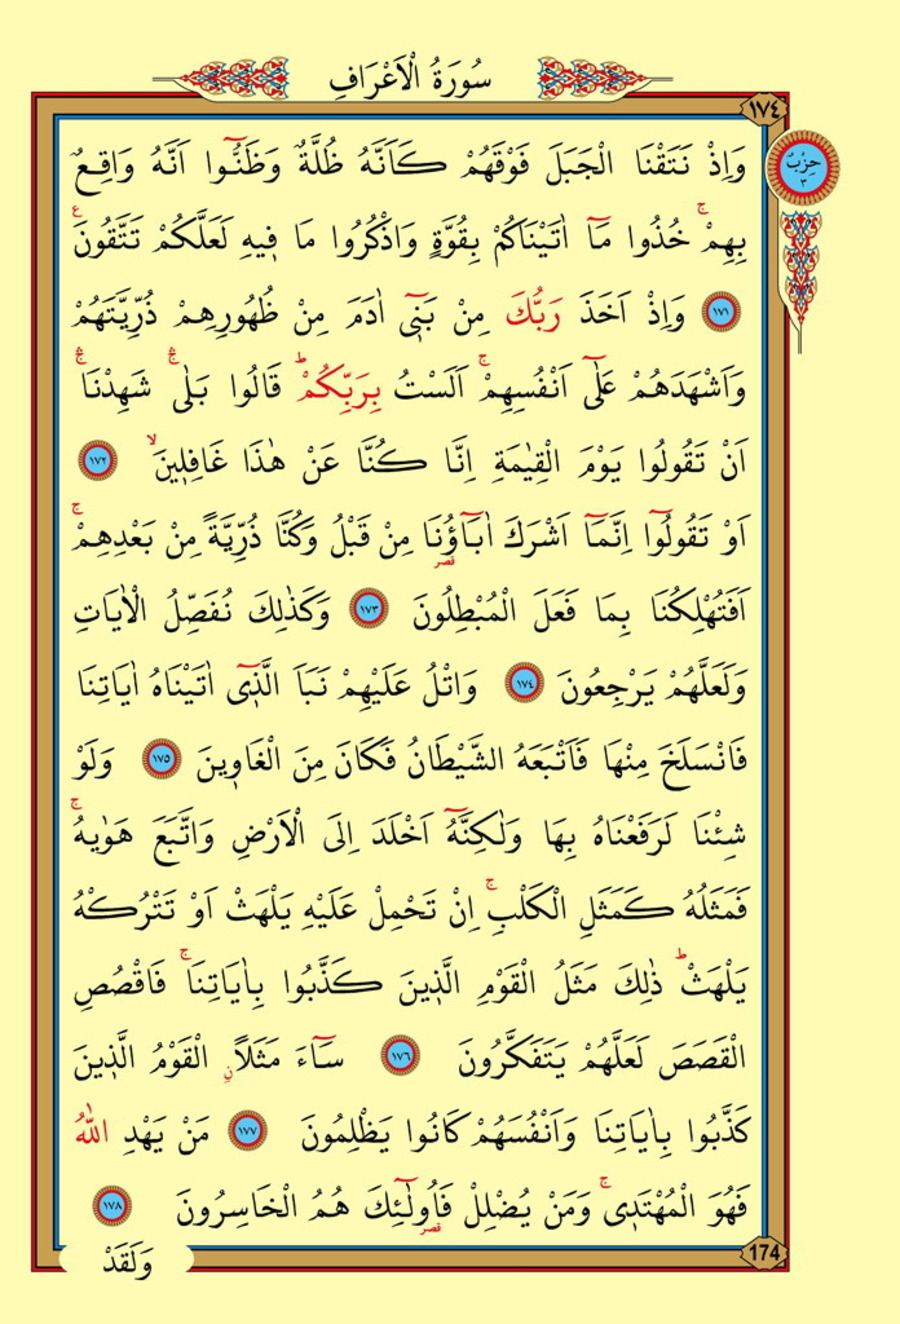 سُورَةُ الْاَعْرَافِ
١٧٤
حِزْبٌ
٣
وَاِذْ نَتَقْنَا الْجَبَلَ فَوْقَهُمْ كَاَنَّهُ ظُلَّةٌ وَظَنُّٓوا اَنَّهُ وَاقِعٌ
بِهِمْۚ خُذُوا مَٓا اٰتَيْنَاكُمْ بِقُوَّةٍ وَاذْكُرُوا مَا ف۪يهِ لَعَلَّكُمْ تَتَّقُونَ ع
١٧١ وَاِذْ اَخَذَ رَبُّكَ مِنْ بَن۪ٓي اٰدَمَ مِنْ ظُهُورِهِمْ ذُرِّيَّتَهُمْ
وَاَشْهَدَهُمْ عَلٰٓى اَنْفُسِهِمْۚ اَلَسْتُ بِرَبِّكُمْۜ قَالُوا بَلٰىۛ شَهِدْنَاۛ
اَنْ تَقُولُوا يَوْمَ الْقِيٰمَةِ اِنَّا كُنَّا عَنْ هٰذَا غَافِل۪ينَۙ ١٧٢
اَوْ تَقُولُٓوا اِنَّمَٓا اَشْرَكَ اٰبَٓاؤُ۬نَا مِنْ قَبْلُ وَكُنَّا ذُرِّيَّةً مِنْ بَعْدِهِمْۚ
قصر
اَفَتُهْلِكُنَا بِمَا فَعَلَ الْمُبْطِلُونَ ١٧٣ وَكَذٰلِكَ نُفَصِّلُ الْاٰيَاتِ
وَلَعَلَّهُمْ يَرْجِعُونَ ١٧٤ وَاتْلُ عَلَيْهِمْ نَبَاَ الَّذ۪ٓي اٰتَيْنَاهُ اٰيَاتِنَا
فَانْسَلَخَ مِنْهَا فَاَتْبَعَهُ الشَّيْطَانُ فَكَانَ مِنَ الْغَاو۪ينَ ١٧٥ وَلَوْ
شِئْنَا لَرَفَعْنَاهُ بِهَا وَلٰكِنَّهُٓ اَخْلَدَ اِلَى الْاَرْضِ وَاتَّبَعَ هَوٰيهُۚ
فَمَثَلُهُ كَمَثَلِ الْكَلْبِۚ اِنْ تَحْمِلْ عَلَيْهِ يَلْهَثْ اَوْ تَتْرُكْهُ
يَلْهَثْۜ ذٰلِكَ مَثَلُ الْقَوْمِ الَّذ۪ينَ كَذَّبُوا بِاٰيَاتِنَاۚ فَاقْصُصِ
الْقَصَصَ لَعَلَّهُمْ يَتَفَكَّرُونَ ١٧٦ سَٓاءَ مَثَلاًۨ الْقَوْمُ الَّذ۪ينَ
كَذَّبُوا بِاٰيَاتِنَا وَاَنْفُسَهُمْ كَانُوا يَظْلِمُونَ ١٧٧ مَنْ يَهْدِ اللّٰهُ
فَهُوَ الْمُهْتَد۪يۚ وَمَنْ يُضْلِلْ فَاُو۬لٰٓئِكَ هُمُ الْخَاسِرُونَ ١٧٨
قصر
174
وَلَقَدْ